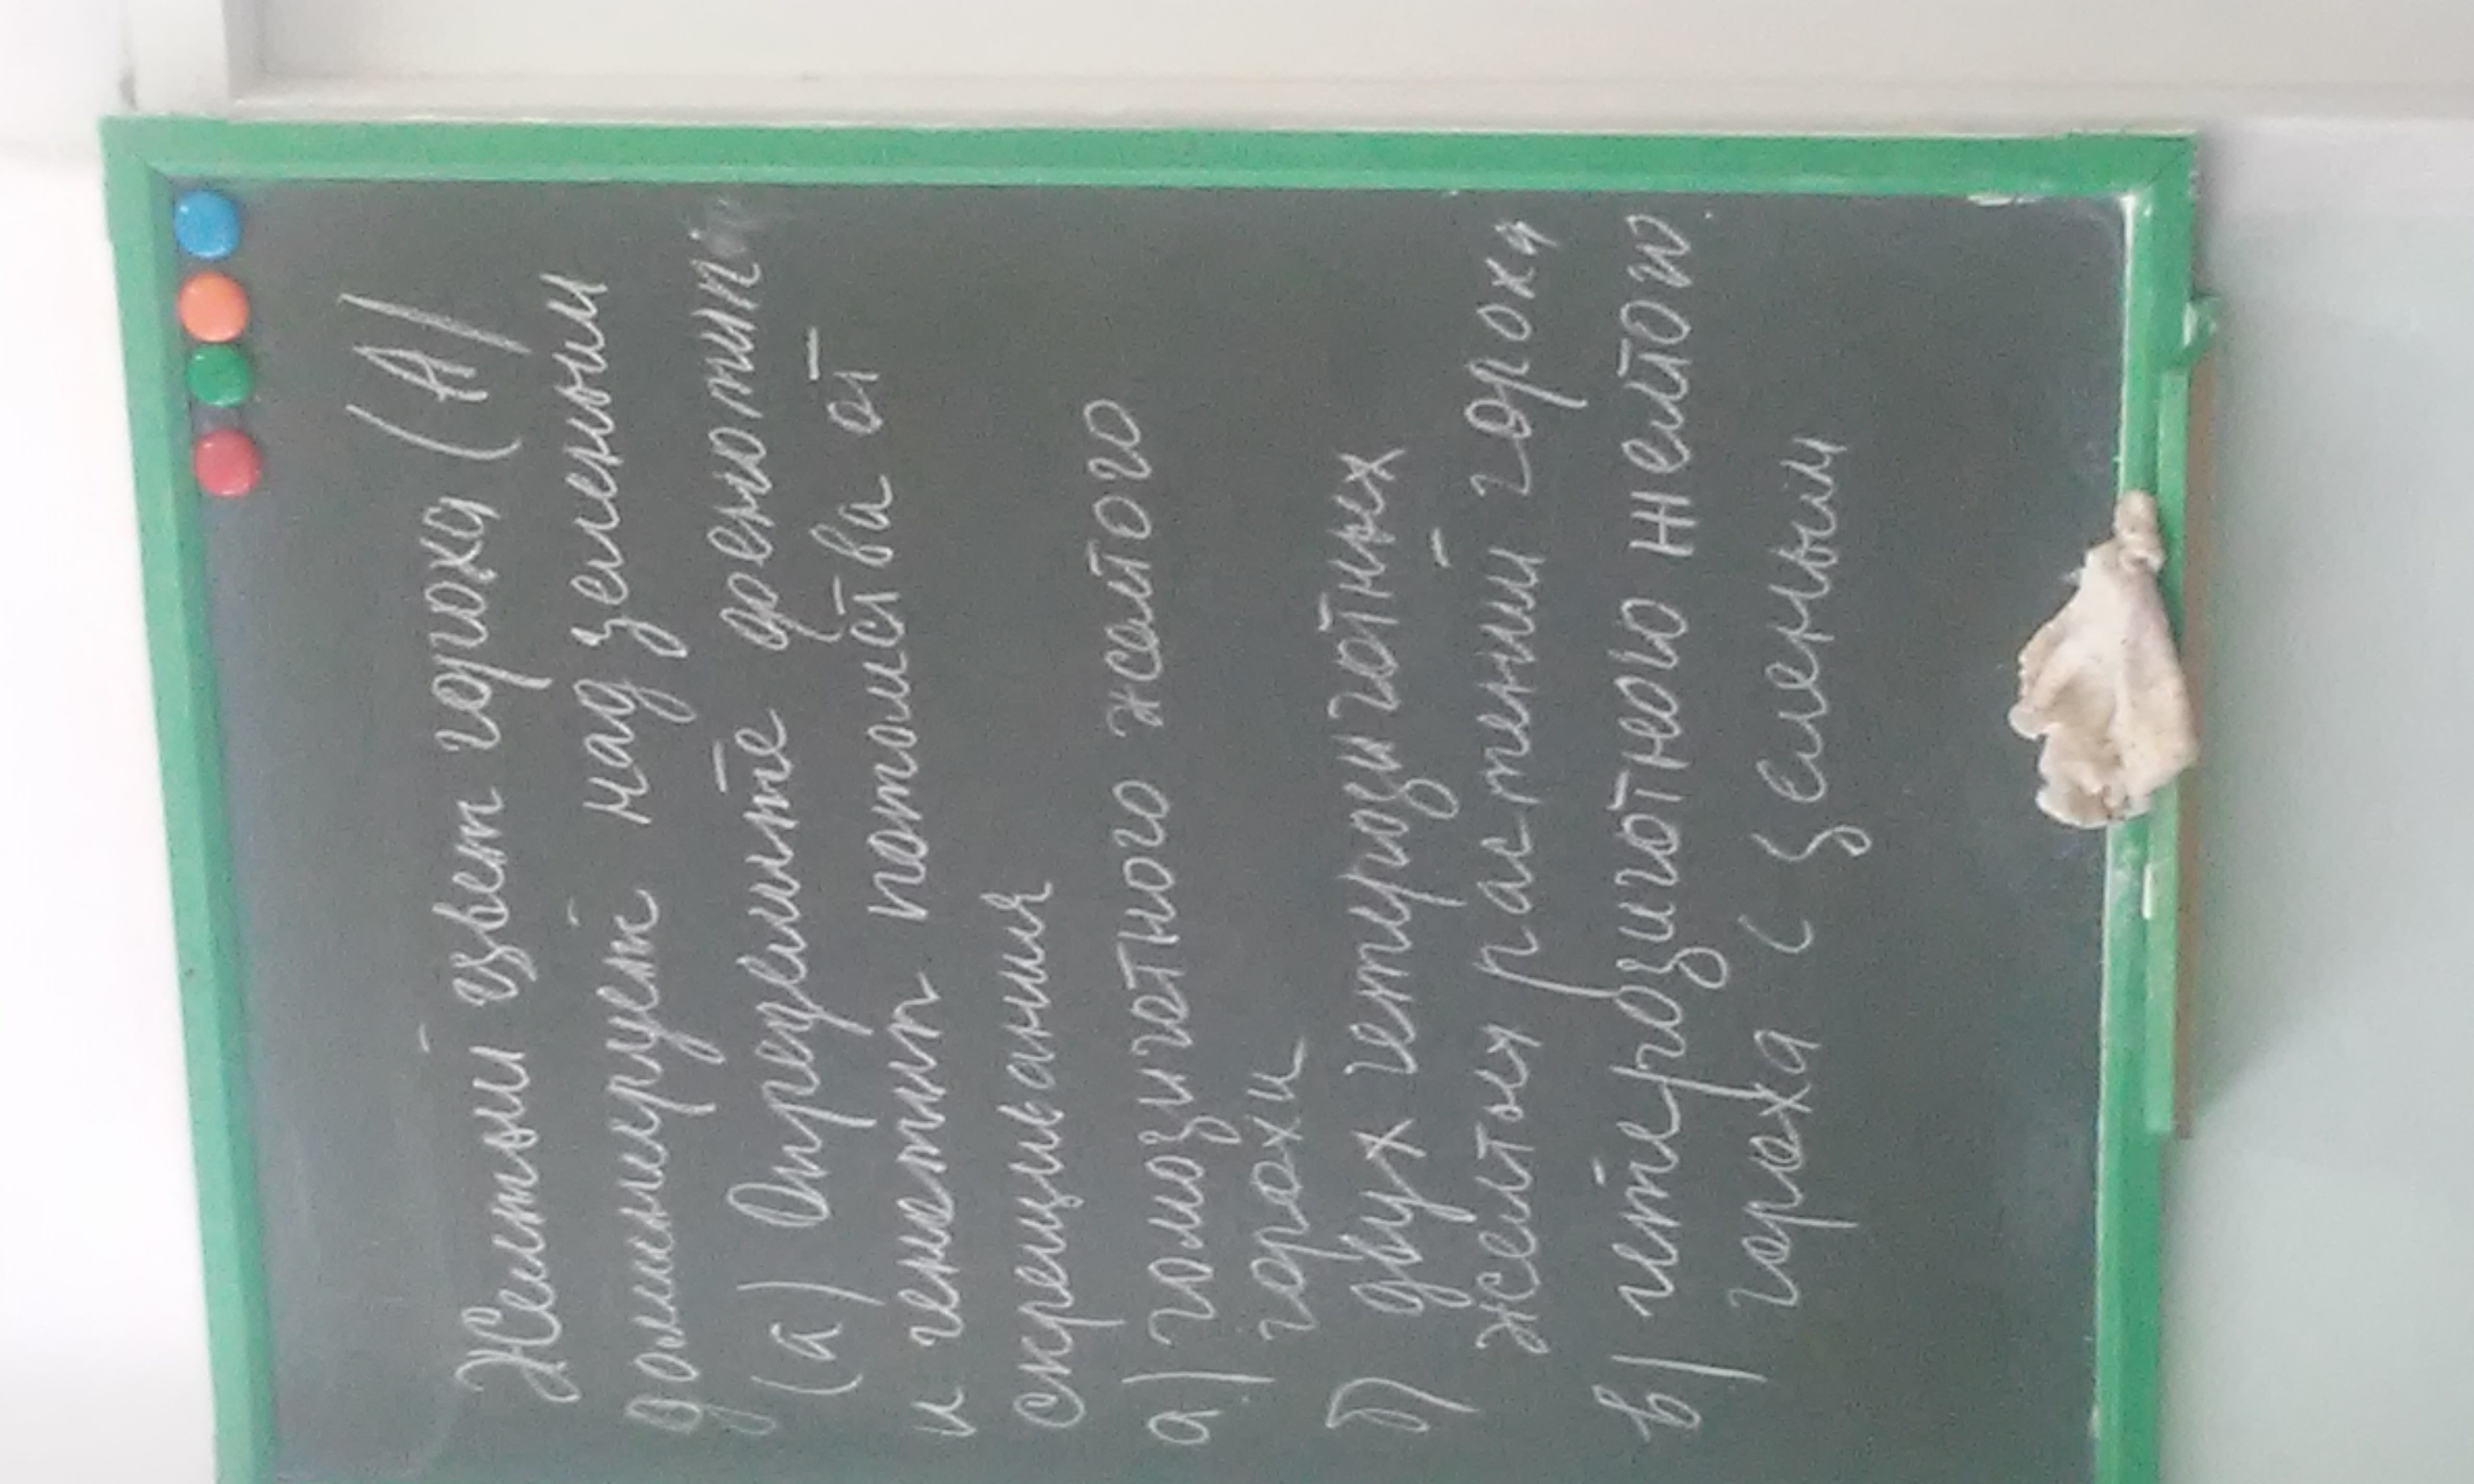 Желтый цвет гороха (А)
доминирует над зеленым
(а) Определите фенотип
и генотип потомства от
скрещивания
а) гомозиготного желтого
гороха
б) двух гетерозиготных
желтых растений гороха
в) гетерозиготного желтого
гороха с зеленым